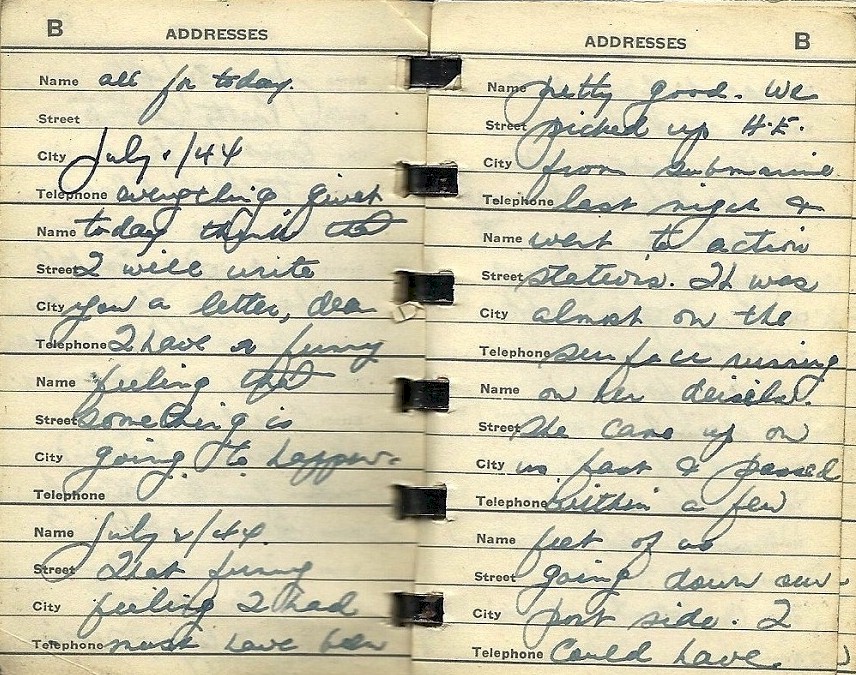 B
ADDRESSES
Name all for today.
Street
City July 1/44
Telephone everything quiet
Name today think that
Street I will write
City you a letter, dear
Telephone I have a funny
Name feeling that
Street something is
City going to happen.
Telephone
Name July 2/44
Street That funny
City feeling I had
Telephone must have been
ADDRESSES
B
Name pretty good. We
Street picked up H.E.
City from submarine
Telephone last night &
Name went to action
Street stations. It was
City almost on the
Telephone surface running
Name on her deisels.
Street She came up on
City us fast & passed
Telephone within a few
Name feet of us
Street going down our
City port side. I
Telephone Could have